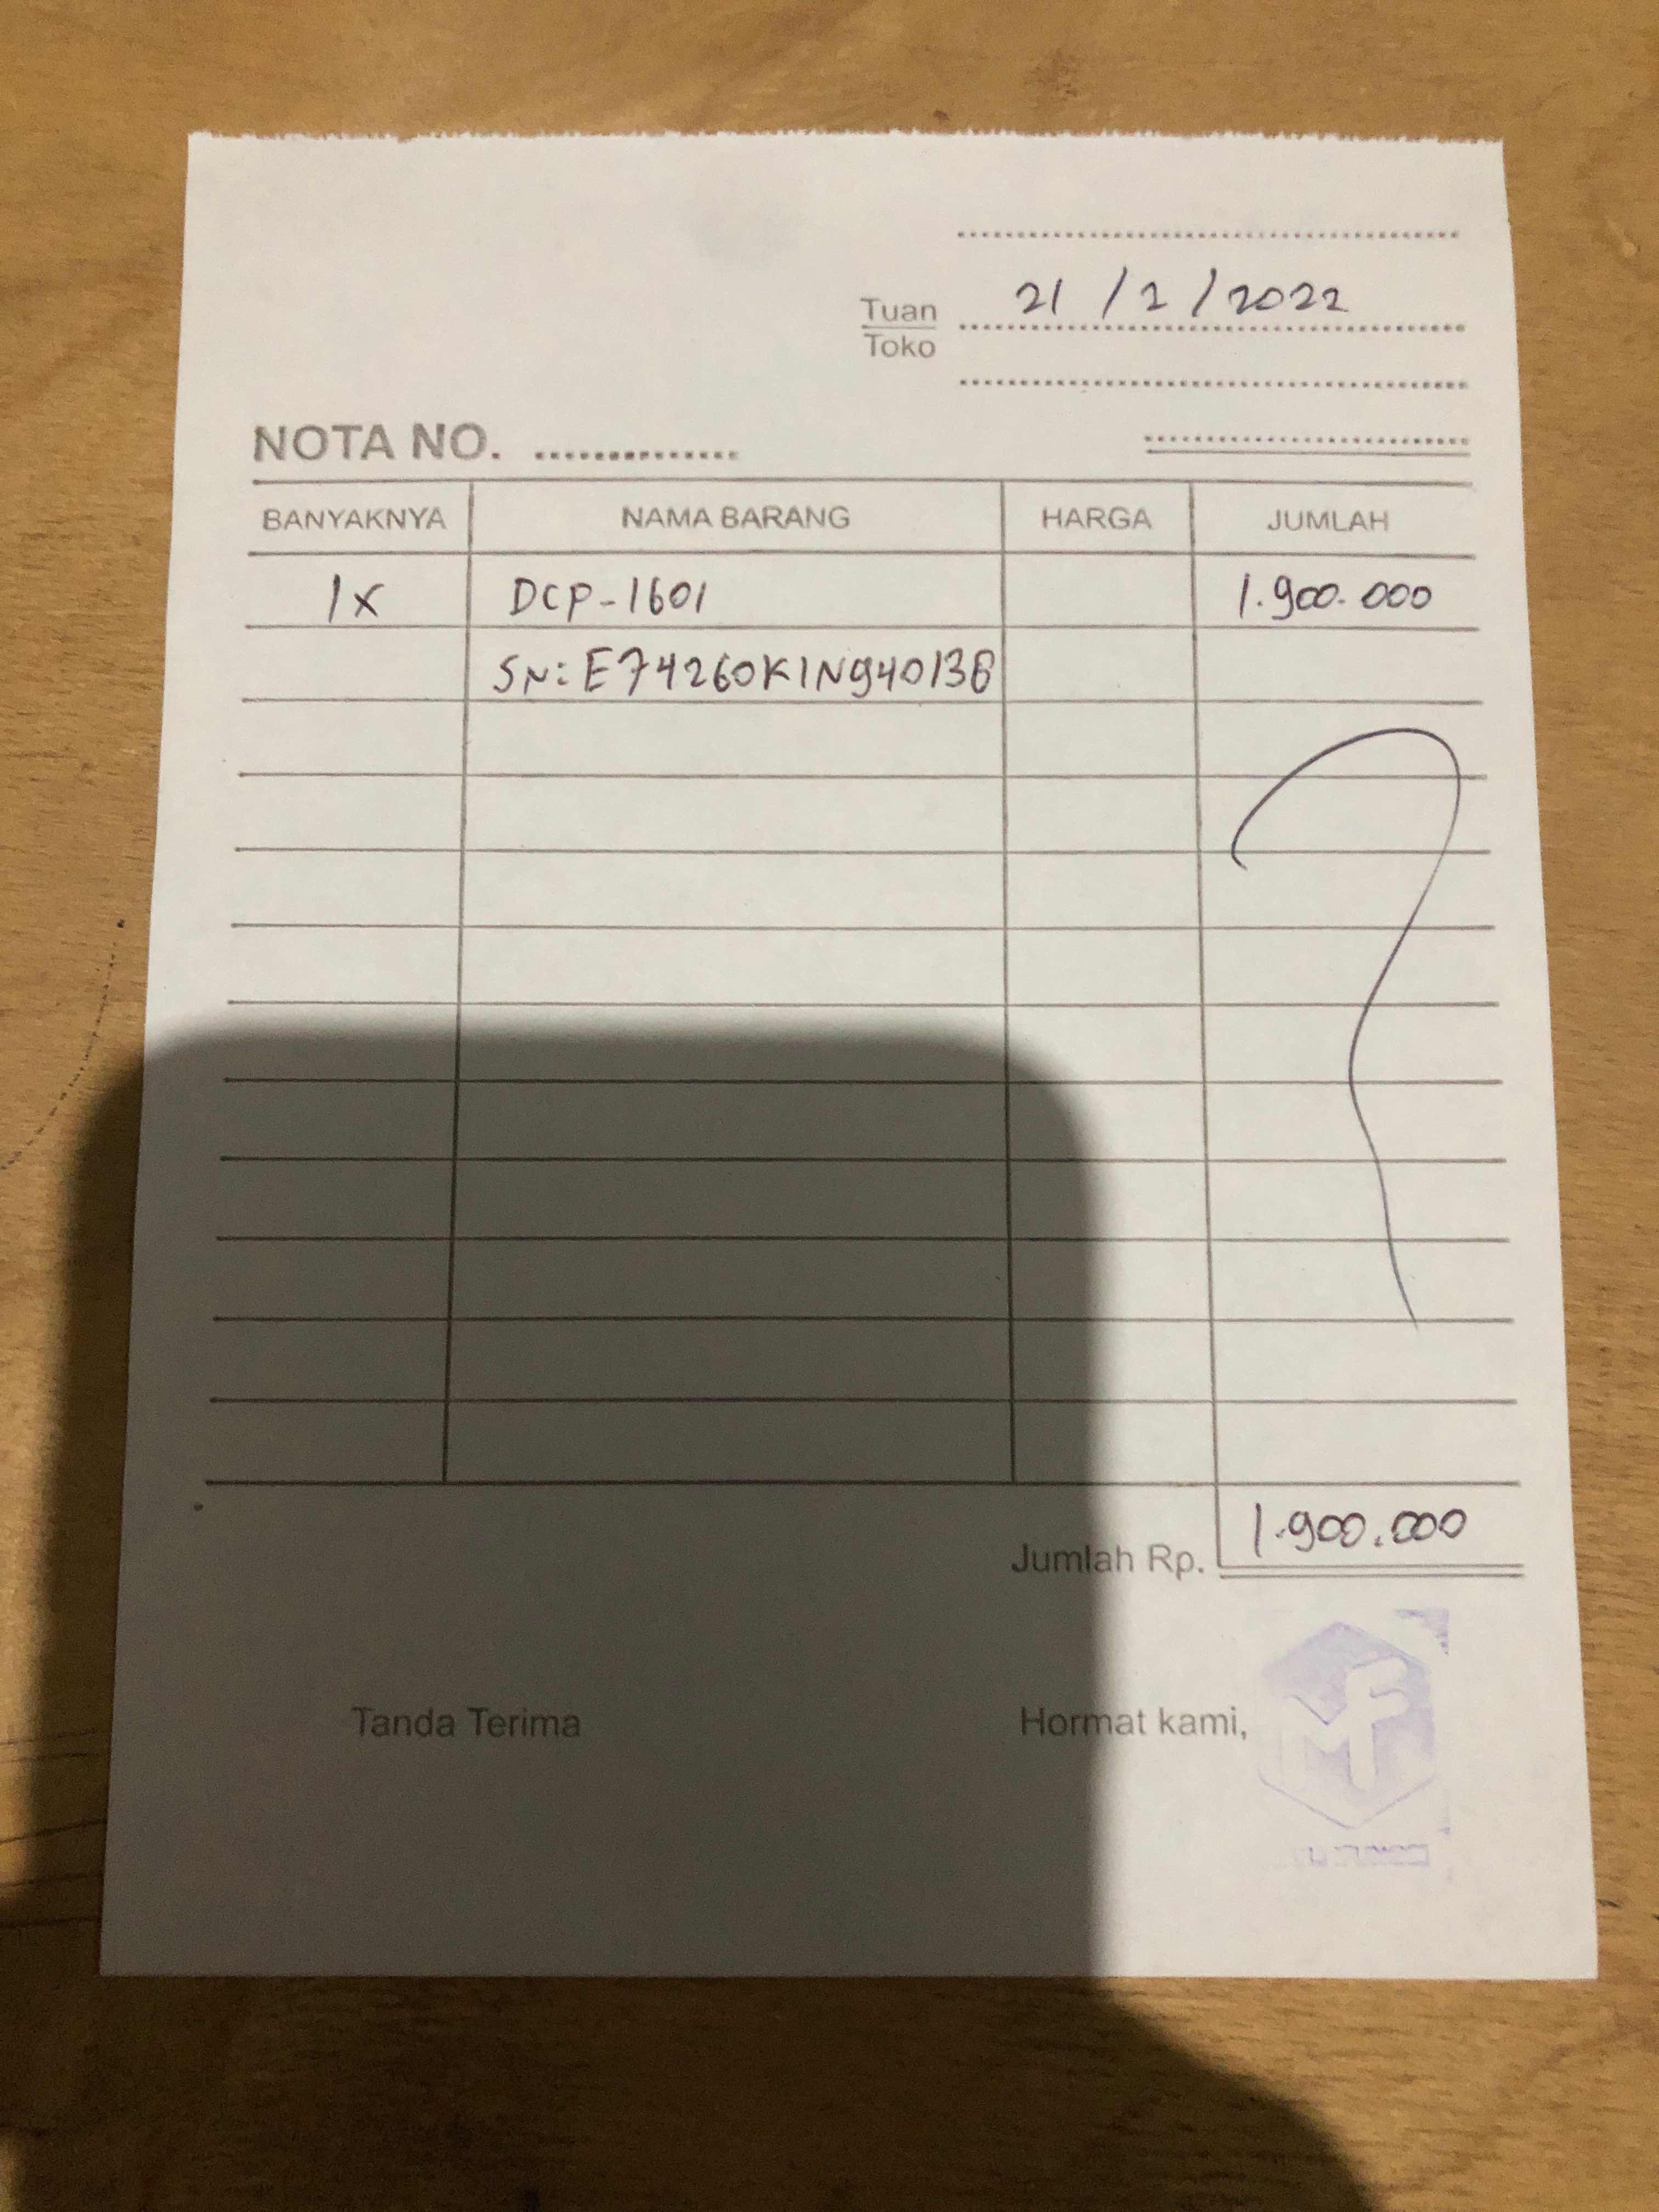 21 / 2 / 2022
Tuan
Toko
NOTA NO. ..............
BANYAKNYA NAMA BARANG HARGA JUMLAH
1x DCP-1601 1.900.000
SN: E74260K1N940138
Jumlah Rp. 1.900.000
Tanda Terima Hormat kami,
MF